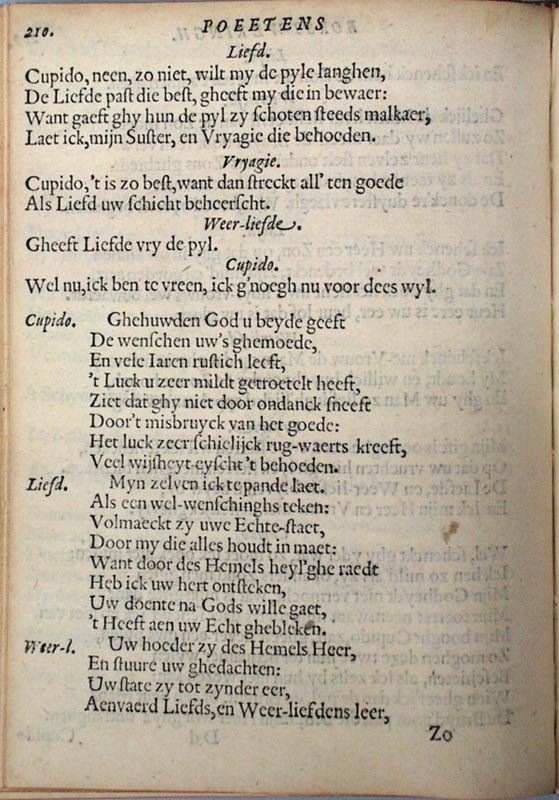 210.
POEETENS
Liefd.
Cupido, neen, zo niet, wilt my de pyle langhen,
De Liefde past die best, gheeft my die in bewaer:
Want gaeft ghy hun de pyl zy schoten steeds malkaer,
Laet ick, mijn Suster, en Vryagie die behoeden.
Vryagie.
Cupido, 't is zo best, want dan streckt all' ten goede
Als Liefd uw schicht beheerscht.
Weer-liefde.
Gheeft Liefde vry de pyl.
Cupido.
Wel nu, ick ben te vreen, ick g'noegh nu voor dees wyl.
Cupido. Ghehuwden God u beyde geeft
De wenschen uw's ghemoede,
En vele Iaren rustich leeft,
't Luck u zeer mildt getroetelt heeft,
Ziet dat ghy niet door ondanck sneeft
Door't misbruyck van het goede:
Het luck zeer schielijck rug-waerts kreeft,
Veel wijsheyt eyscht't behoeden.
Liefd. Myn zelven ick te pande laet.
Als een wel-wenschinghs teken:
Volmaeckt zy uwe Echte-staet,
Door my die alles houdt in maet:
Want door des Hemels heyl'ghe raedt
Heb ick uw hert ontsteken,
Uw doente na Gods wille gaet,
't Heeft aen uw Echt ghebleken.
Weer-l. Uw hoeder zy des Hemels Heer,
En stuure uw ghedachten:
Uw state zy tot zynder eer,
Aenvaerd Liefds, en Weer-liefdens leer,
Zo